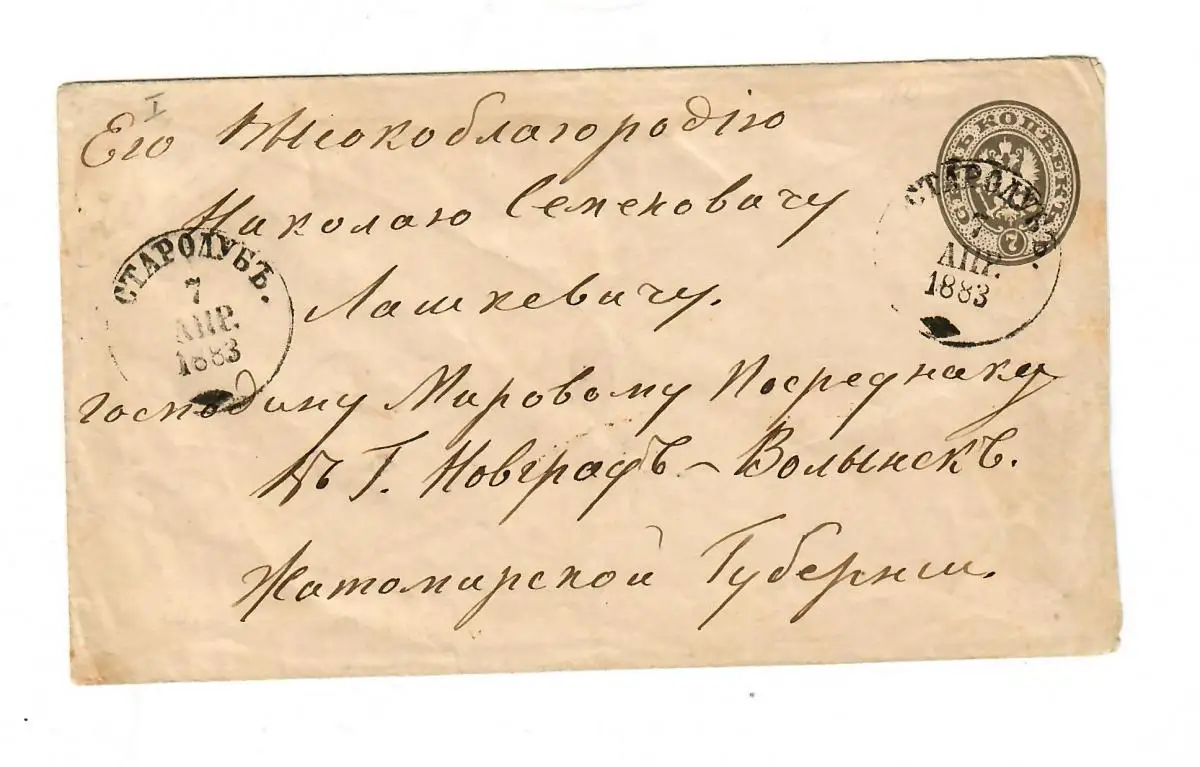 I
Его Высокоблагородію
Николаю Семеновичу
Лашкевичу.
господину Мировому Посреднику
въ Г. Новградъ-Волынскъ.
Житомирской Губерніи.
СТАРОДУБЪ.
7
АПР.
1883
СЕМЬ КОПѢЕКЪ
7
СТАРОДУБЪ.
7
АПР.
1883